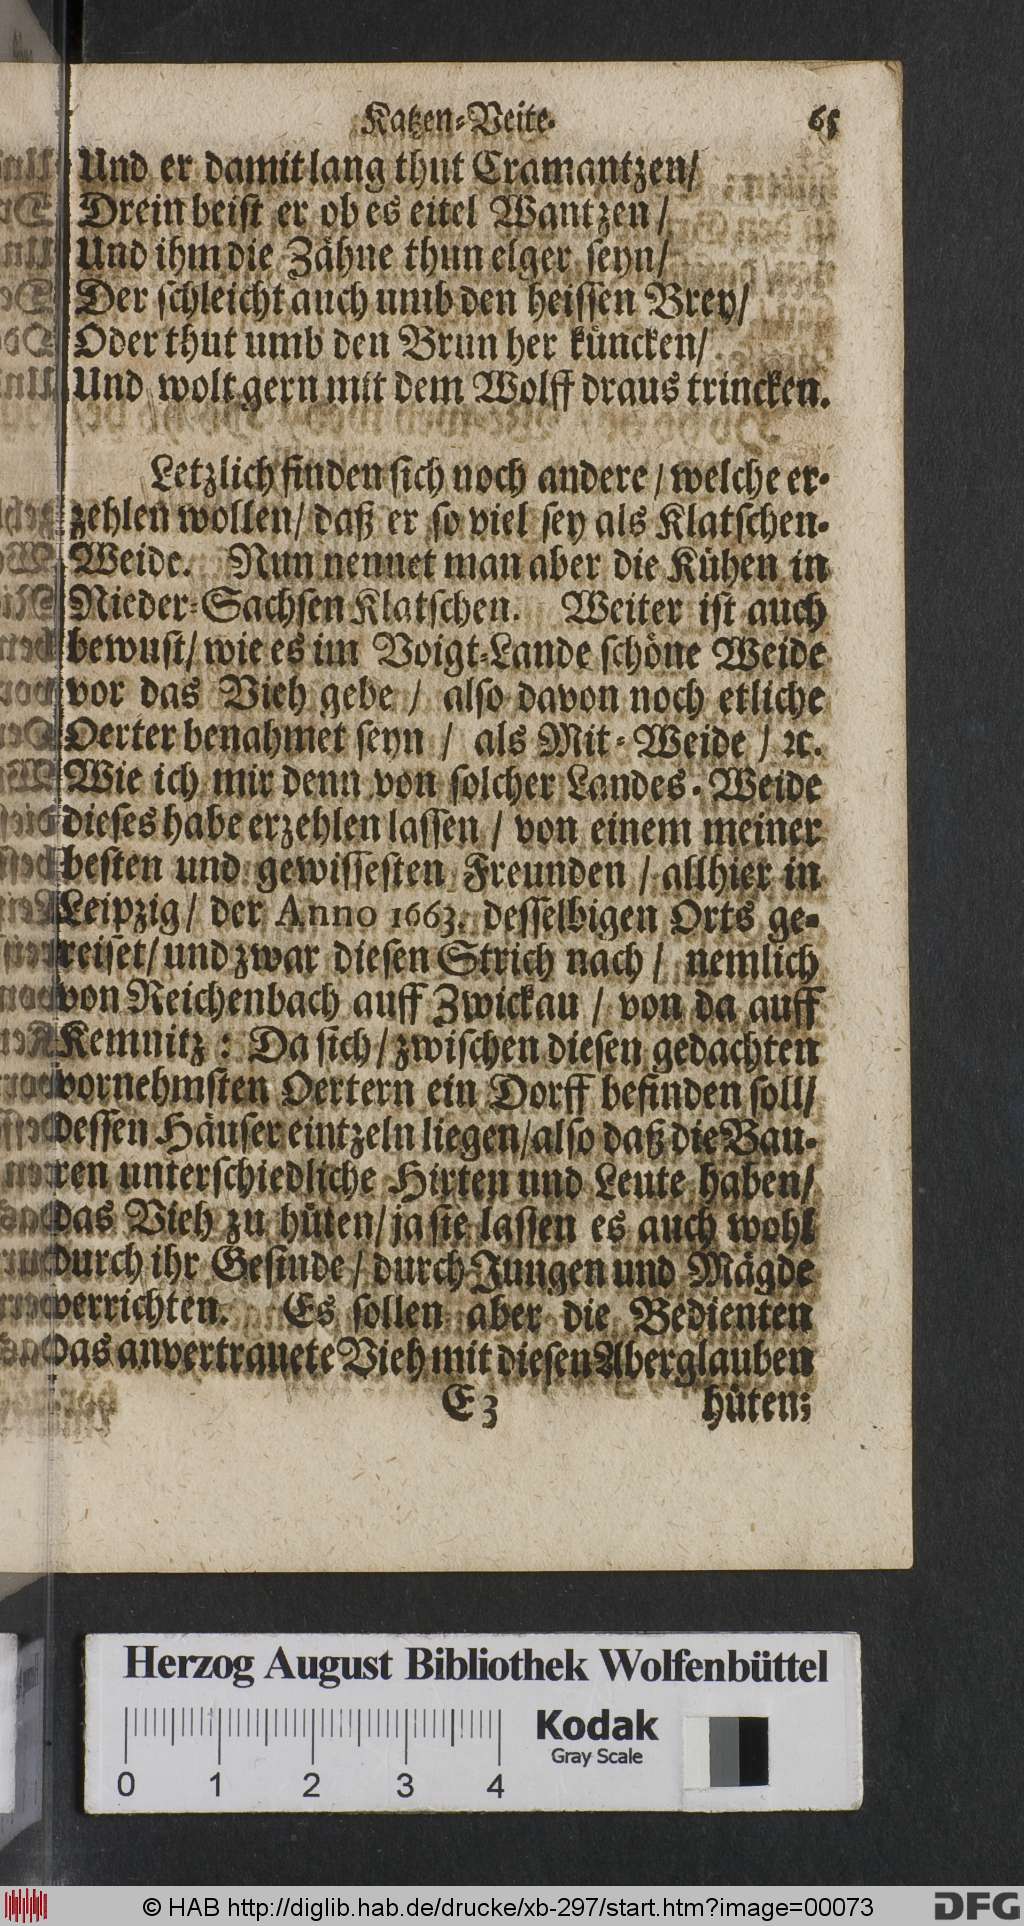 Katzen-Veite. 65
Und er damit lang thut Cramantzen/
Drein beist er ob es eitel Wantzen/
Und ihm die Zähne thun elger seyn/
Der schleicht auch umb den heissen Brey/
Oder thut umb den Brun her küncken/
Und wolt gern mit dem Wolff draus trincken.
Letzlich finden sich noch andere/ welche er-
zehlen wollen/ daß er so viel sey als Klatschen-
Weide. Nun nennet man aber die Kühen in
Nieder-Sachsen Klatschen. Weiter ist auch
bewust/ wie es im Voigt-Lande schöne Weide
vor das Vieh gebe/ also davon noch etliche
Oerter benahmet seyn/ als Mit-Weide/ ꝛc.
Wie ich mir denn von solcher Landes-Weide
dieses habe erzehlen lassen/ von einem meiner
besten und gewissesten Freunden/ allhier in
Leipzig/ der Anno 1663. desselbigen Orts ge-
reiset/ und zwar diesen Strich nach/ nemlich
von Reichenbach auff Zwickau/ von da auff
Kemnitz: Da sich/ zwischen diesen gedachten
vornehmsten Oertern ein Dorff befinden soll/
dessen Häuser eintzeln liegen/ also daß die Bau-
ren unterschiedliche Hirten und Leute haben/
das Vieh zu hüten/ ja sie lassen es auch wohl
durch ihr Gesinde/ durch Jungen und Mägde
verrichten. Es sollen aber die Bedienten
das anvertrauete Vieh mit diesen Aberglauben
E 3 hüten;
Herzog August Bibliothek Wolfenbüttel
Kodak
Gray Scale
0 1 2 3 4
© HAB http://diglib.hab.de/drucke/xb-297/start.htm?image=00073
DFG